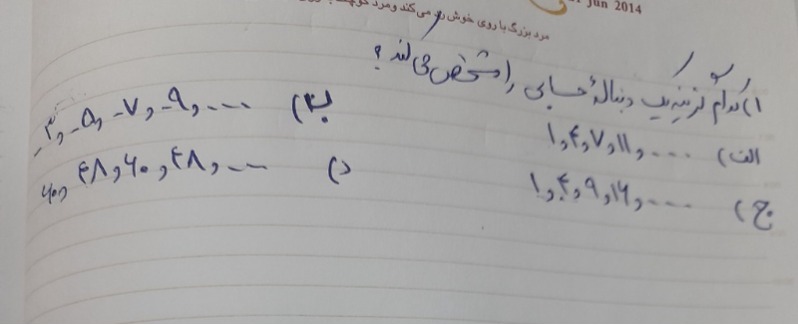 Jun 2014
مرد بزرگ با روی خوش رد می کند و مرد
۱) کدام گزینه یک دنبالهٔ حسابی را مشخص می کند ؟
الف) ۱,۴,۷,۱۱, ...
ب) -۳, -۵, -۷, -۹, ...
ج) ۱,۴,۹,۱۶, ...
د) ۶۰, ۴۸, ۶۰, ۴۸, ...